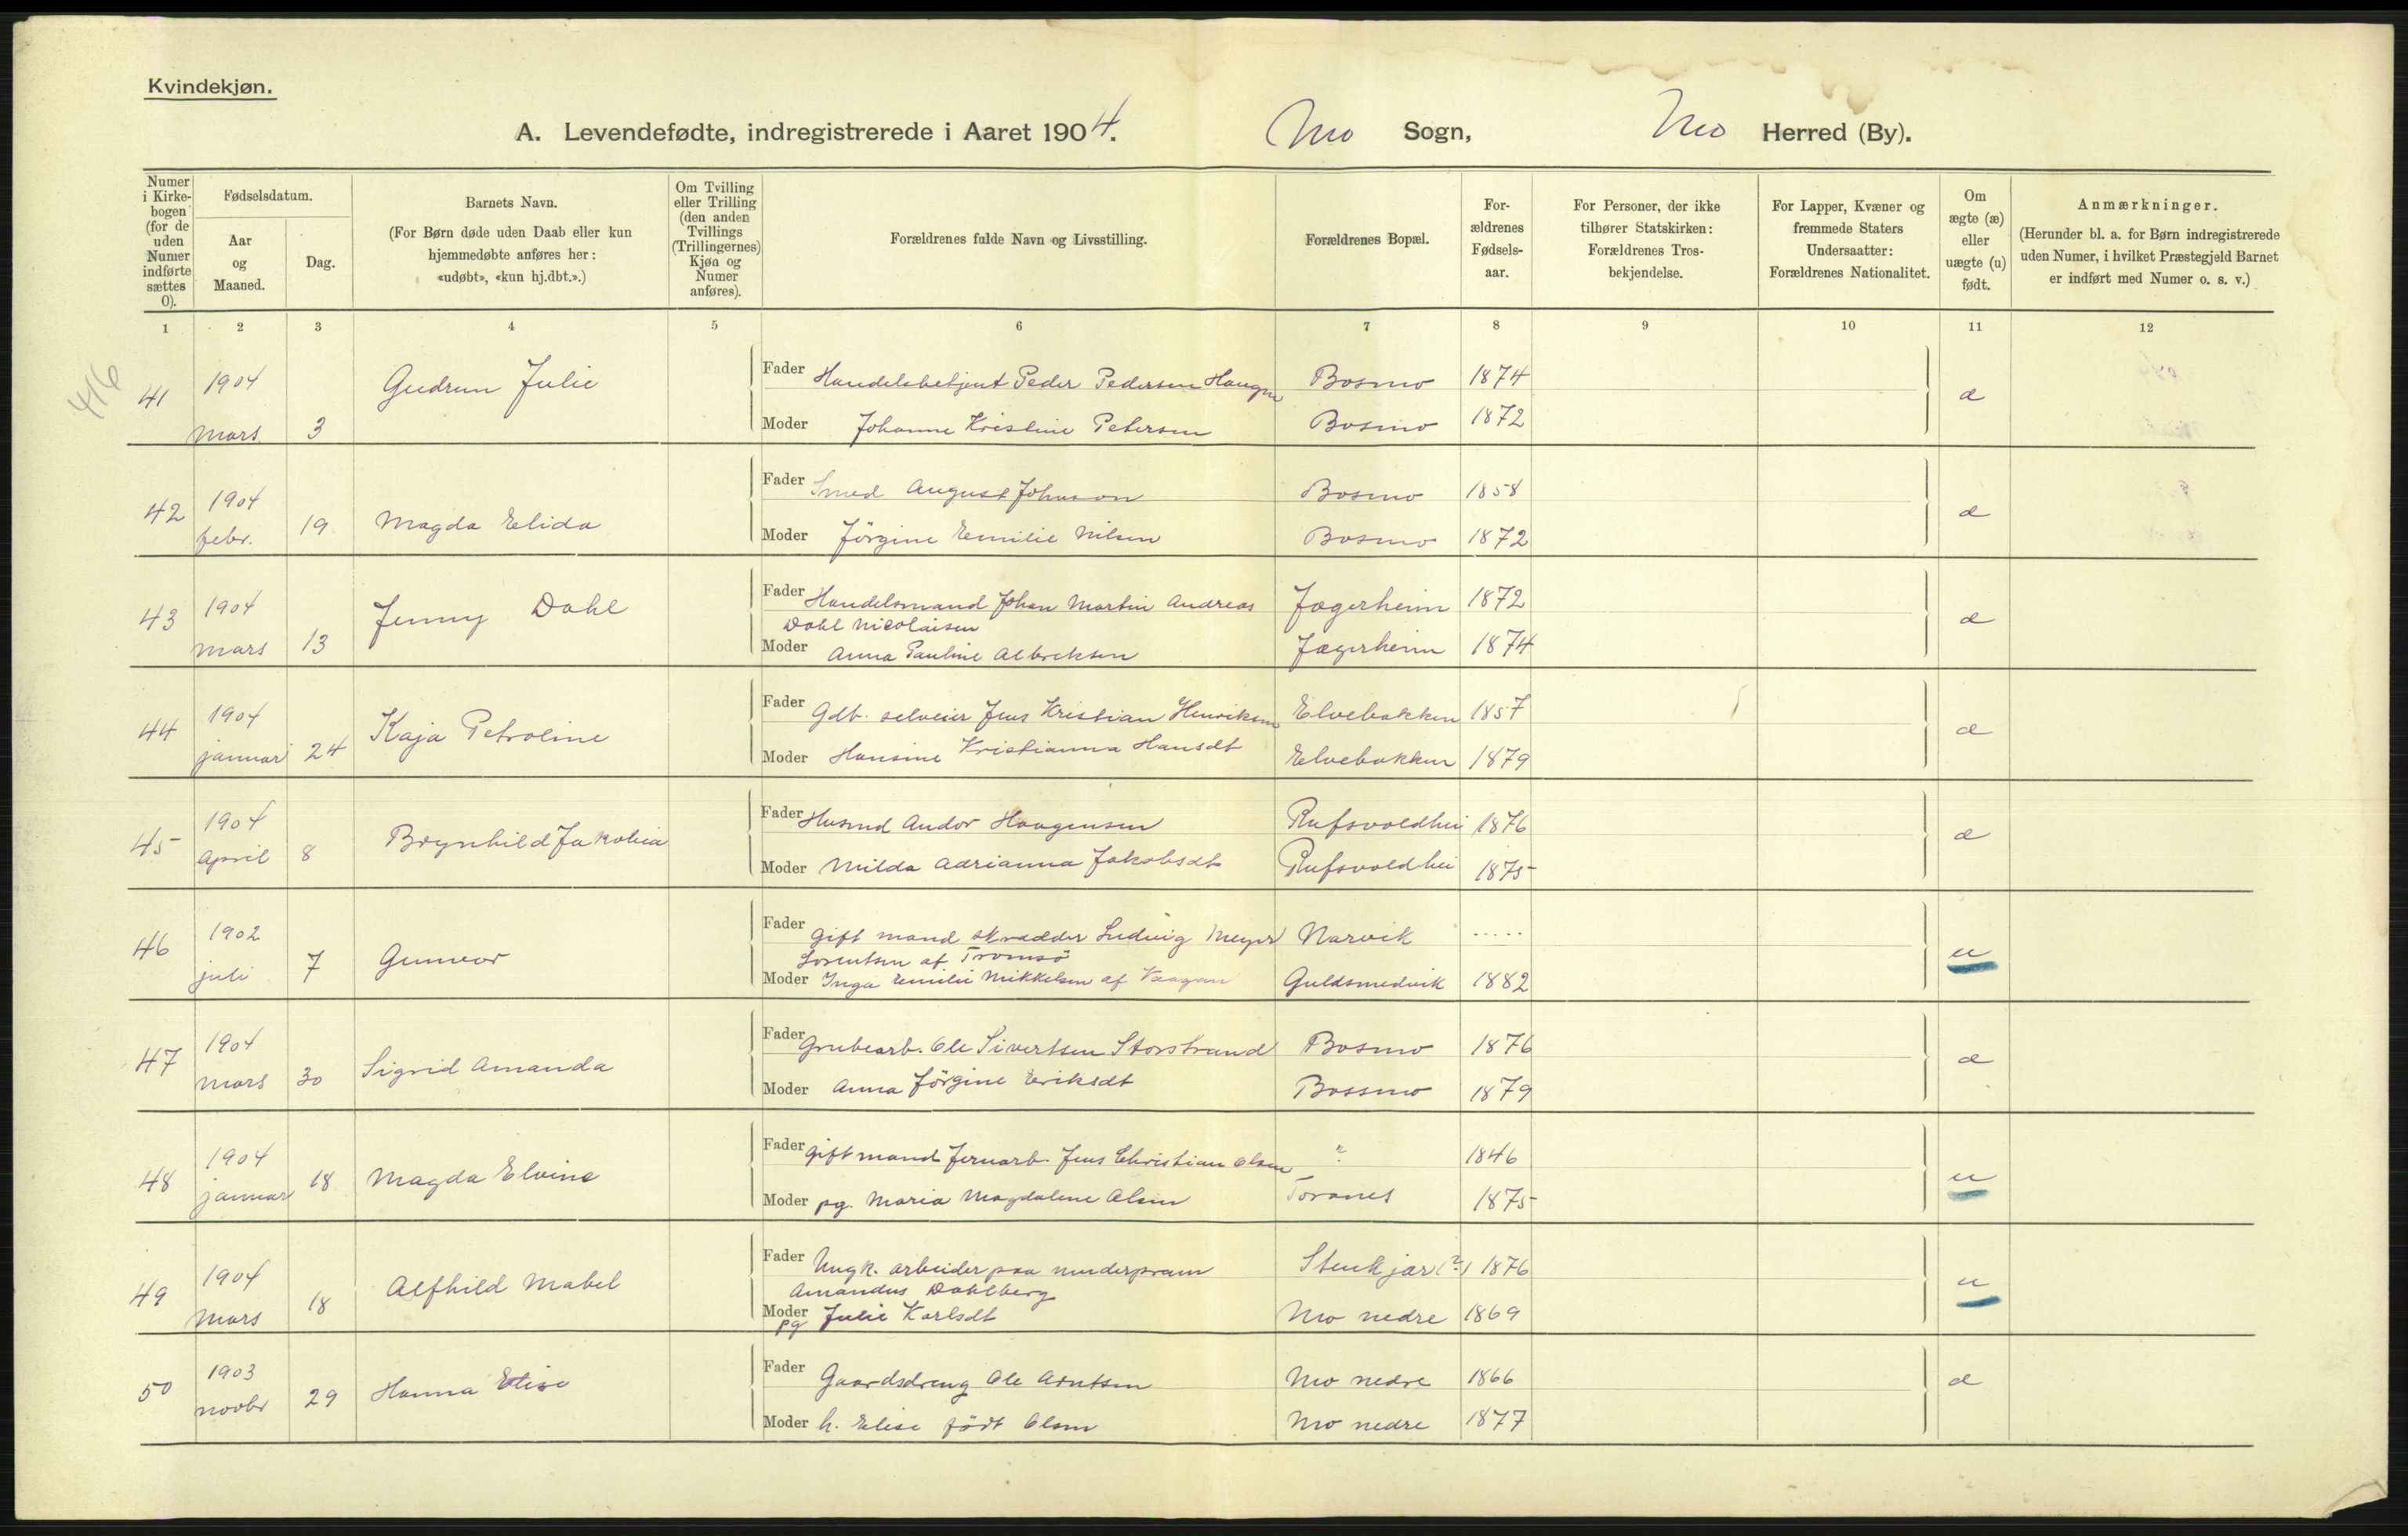 Kvindekjøn.
A. Levendefødte, indregistrerede i Aaret 1904.
Mo Sogn,
Mo Herred (By).
Numer i Kirkebogen (for de uden Numer indførte sættes 0).
Fødselsdatum.
Aar og Maaned.
Dag.
Barnets Navn.
(For Børn døde uden Daab eller kun hjemmedøbte anføres her: «udøbt», «kun hj.dbt.».)
Om Tvilling eller Trilling (den anden Tvillings (Trillingernes) Kjøn og Numer anføres).
Forældrenes fulde Navn og Livsstilling.
Forældrenes Bopæl.
Forældrenes Fødselsaar.
For Personer, der ikke tilhører Statskirken: Forældrenes Trosbekjendelse.
For Lapper, Kvæner og fremmede Staters Undersaatter: Forældrenes Nationalitet.
Om ægte (æ) eller uægte (u) født.
Anmærkninger.
(Herunder bl. a. for Børn indregistrerede uden Numer, i hvilket Præstegjeld Barnet er indført med Numer o. s. v.)
1 2 3 4 5 6 7 8 9 10 11 12
416
41 1904 mars 3 Gudrun Julie
Fader Handelsbetjent Peder Pedersen Haugen Bosmo 1874 æ
Moder Johanne Kristine Petersen Bosmo 1872
42 1904 febr. 19 Magda Elida
Fader Smed August Johnson Bosmo 1858 æ
Moder Jörgine Emilie Nilsen Bosmo 1872
43 1904 mars 13 Jenny Dahl
Fader Handelsmand Johan Martin Andreas Jægerheim 1872 æ
Dahl Nicolaisen
Moder Anna Pauline Albreksen Jægerheim 1874
44 1904 januar 24 Kaja Petroline
Fader Gdb. selveier Jens Kristian Henriksen Elvebakken 1857 æ
Moder Hansine Kristianna Hansdt Elvebakken 1879
45 1904 April 8 Brynhild Jakobia
Fader Husmd Andor Haagensen Rufsvoldhei 1876 æ
Moder Milda Adrianna Jakobsdt Rufsvoldhei 1875
46 1902 juli 7 Gunvor
Fader gift mand skrædder Ludvig Meyer Narvik ..... u
Lorentsen af Tromsö
Moder Inga Emilie Mikkelsen af Vaagan Guldsmedvik 1882
47 1904 mars 30 Sigrid Amanda
Fader Grubearb. Ole Sivertsen Storstrand Bosmo 1876 æ
Moder Anna Jörgine Eriksdt Bossmo 1879
48 1904 januar 18 Magda Elvine
Fader gift mand Jernarb. Jens Christian Olsen ? 1846 u
Moder pg. Maria Magdalene Olsen Toranes 1875
49 1904 Mars 18 Alfhild Mabel
Fader Ungk. arbeider paa muderpram Stenkjær (?) 1876 u
Amandus Dahlberg
Moder pg Julie Karlsdt Mo nedre 1869
50 1903 novbr 29 Hanna Elise
Fader Gaardsdreng Ole Arntsen Mo nedre 1866 æ
Moder h. Elise födt Olsen Mo nedre 1877